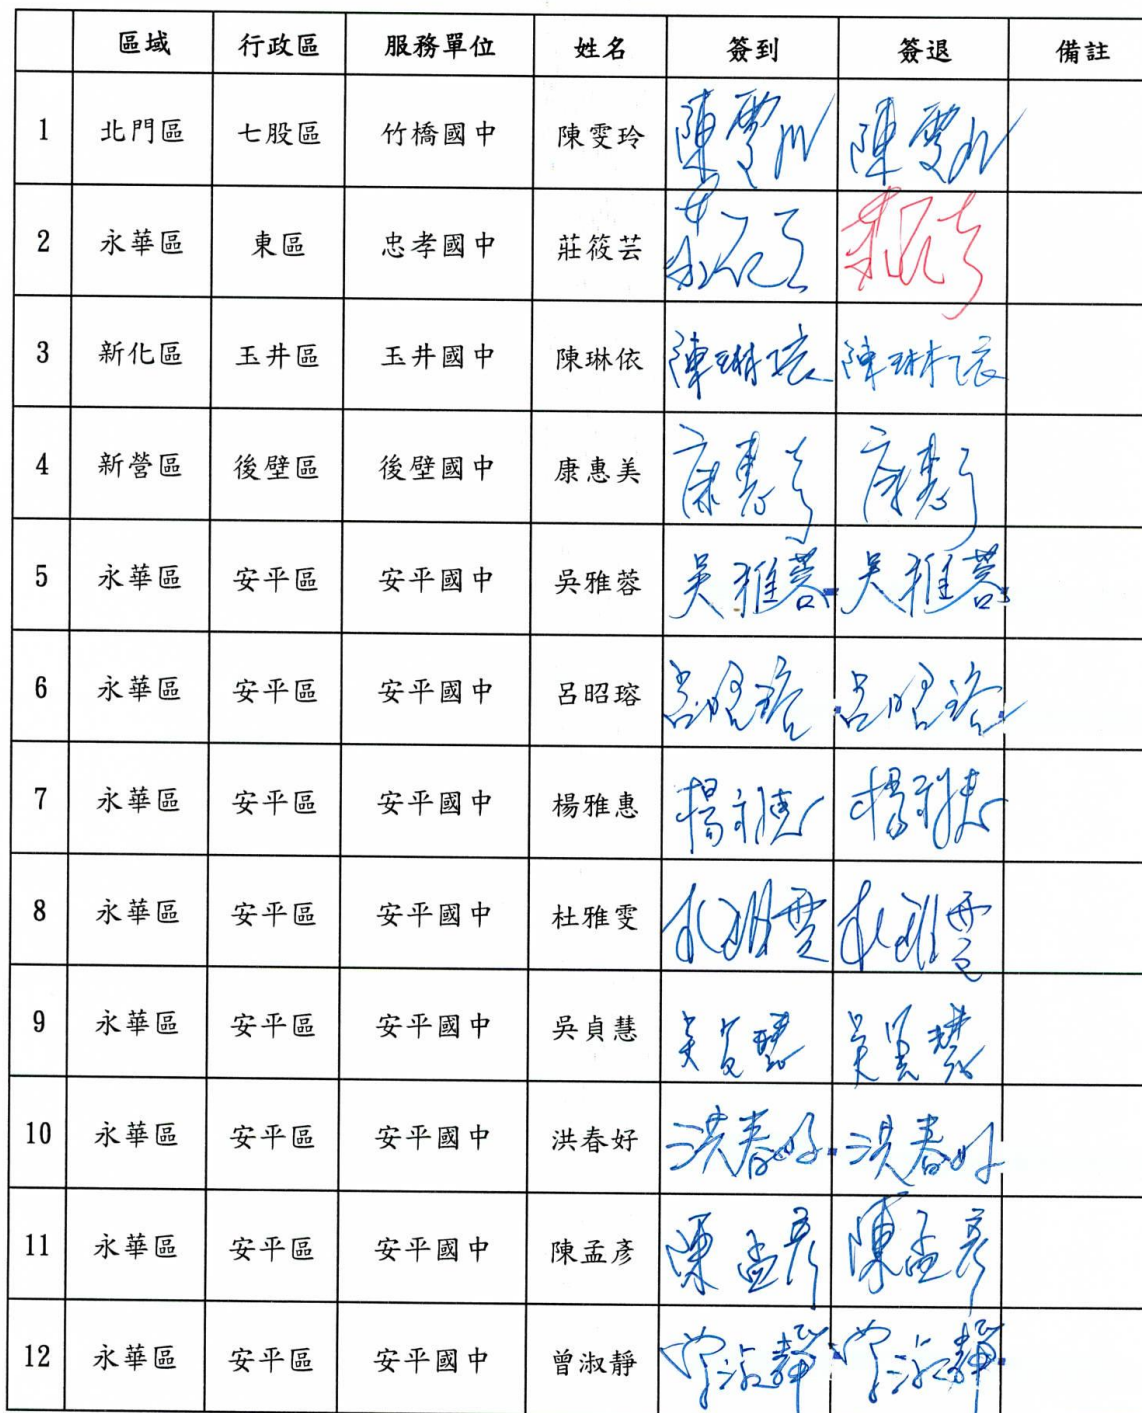 區域 行政區 服務單位 姓名 簽到 簽退 備註
1 北門區 七股區 竹橋國中 陳雯玲 陳雯 陳雯
2 永華區 東區 忠孝國中 莊筱芸
3 新化區 玉井區 玉井國中 陳琳依 陳琳依 陳琳依
4 新營區 後壁區 後壁國中 康惠美 康惠 康惠
5 永華區 安平區 安平國中 吳雅蓉 吳雅蓉 吳雅蓉
6 永華區 安平區 安平國中 呂昭瑢 呂昭瑢 呂昭瑢
7 永華區 安平區 安平國中 楊雅惠 楊雅惠 楊雅惠
8 永華區 安平區 安平國中 杜雅雯 杜雅雯 杜雅雯
9 永華區 安平區 安平國中 吳貞慧 吳貞慧 吳貞慧
10 永華區 安平區 安平國中 洪春好 洪春好 洪春好
11 永華區 安平區 安平國中 陳孟彥 陳孟彥 陳孟彥
12 永華區 安平區 安平國中 曾淑靜 曾淑靜 曾淑靜